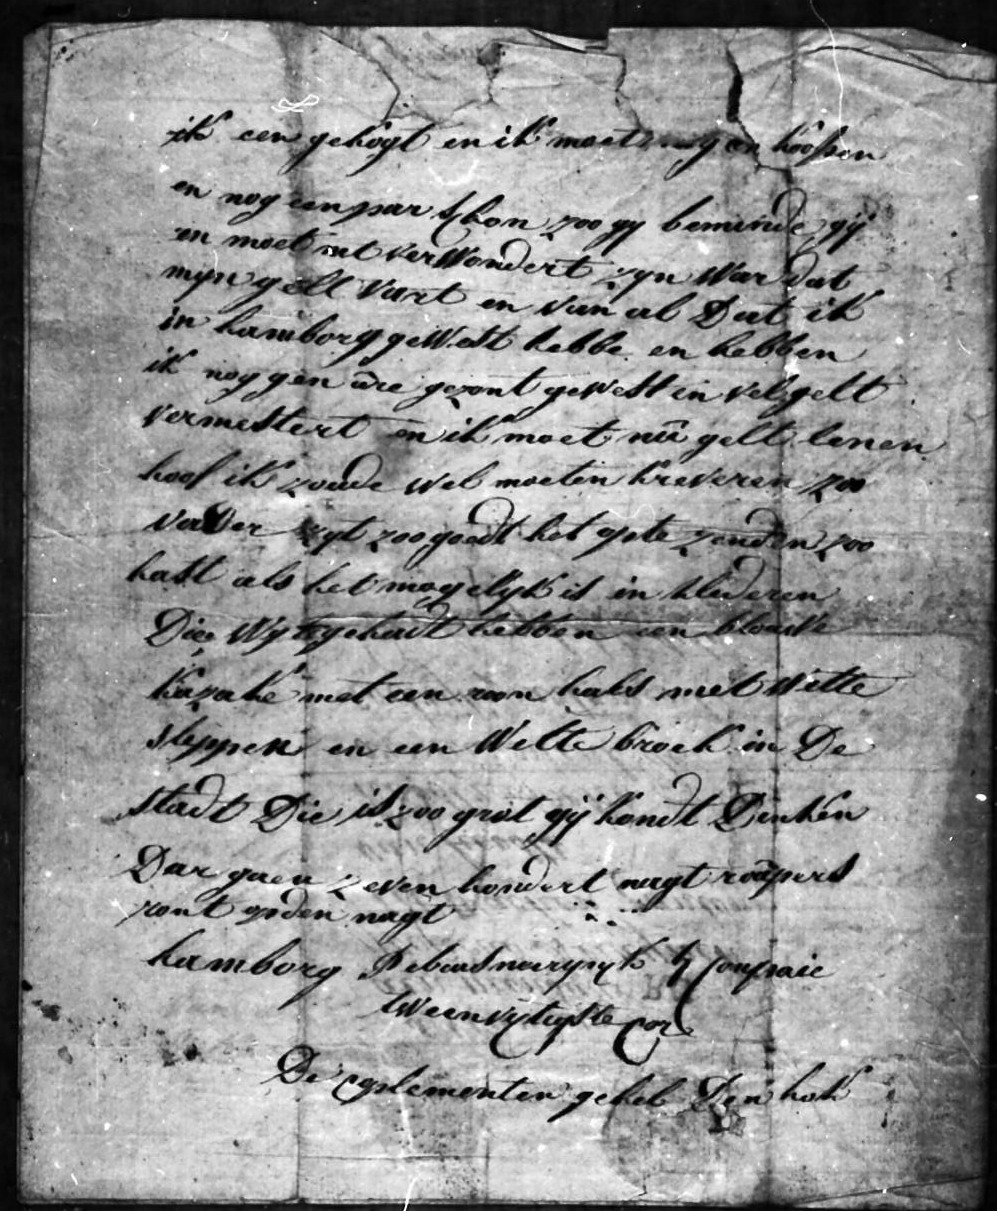 ik een gehogt en ik moet nog en koossen
en nog een par schon zoo gy beminde gij
en moet nit verWondert zyn War dat
myn gelt Vart en van al Dat ik
in hamborg geWest hebbe en hebben
ik nog gen ure gezont geWest en vel gelt
vermestert en ik moet nu gelt lenen
hoof ik zoude wel moeten kreveren zoo
vaDer zyt zoo goedt het opte zenden zoo
hast als het mogelyk is in klederen
Die Wy gehadt hebben een blouWe
kazake met een roon hals met Witte
sleppen en een Witte broek in De
stadt Die is zoo grot gij kondt Dinken
Dar gaen zeven hondert nagt roapers
ront opden nagt
hamborg P ebas 4 Compaie
tWeenvijtigste Cor
De Cyplementen geheel Den hok